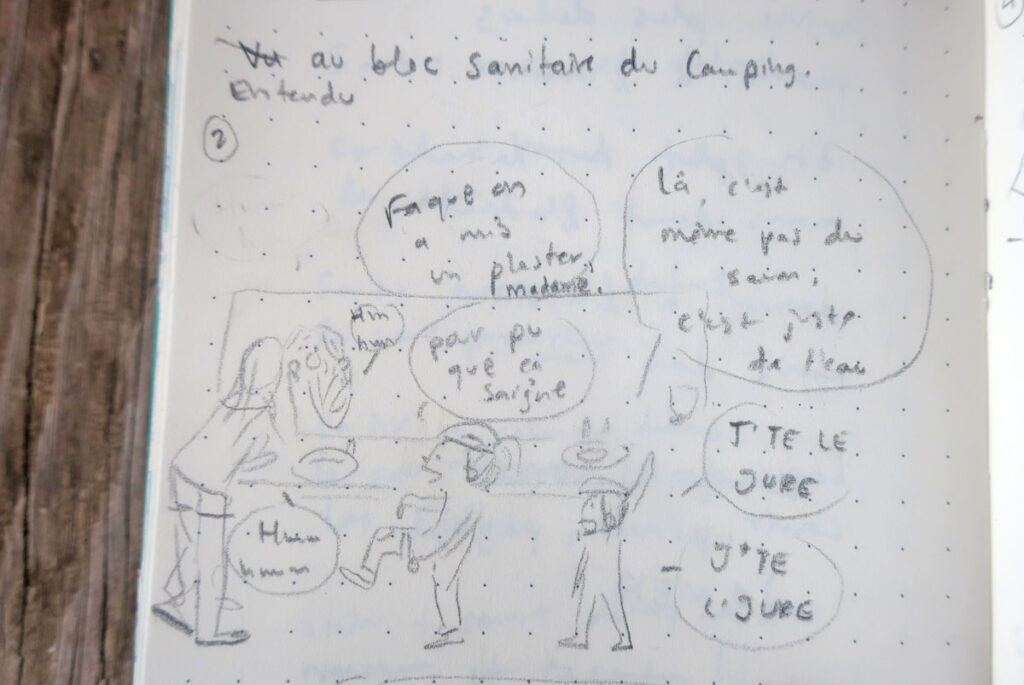 Vu au bloc sanitaire du Camping.
Entendu
2
Faque on
a mis
un plaster,
madame.
Là, c'est
même pas du
c'est juste
de l'eau
Hm
hum
pour pu
que ça
saigne
J'TE LE
JURE
Hum
hmm
J'TE
L'JURE